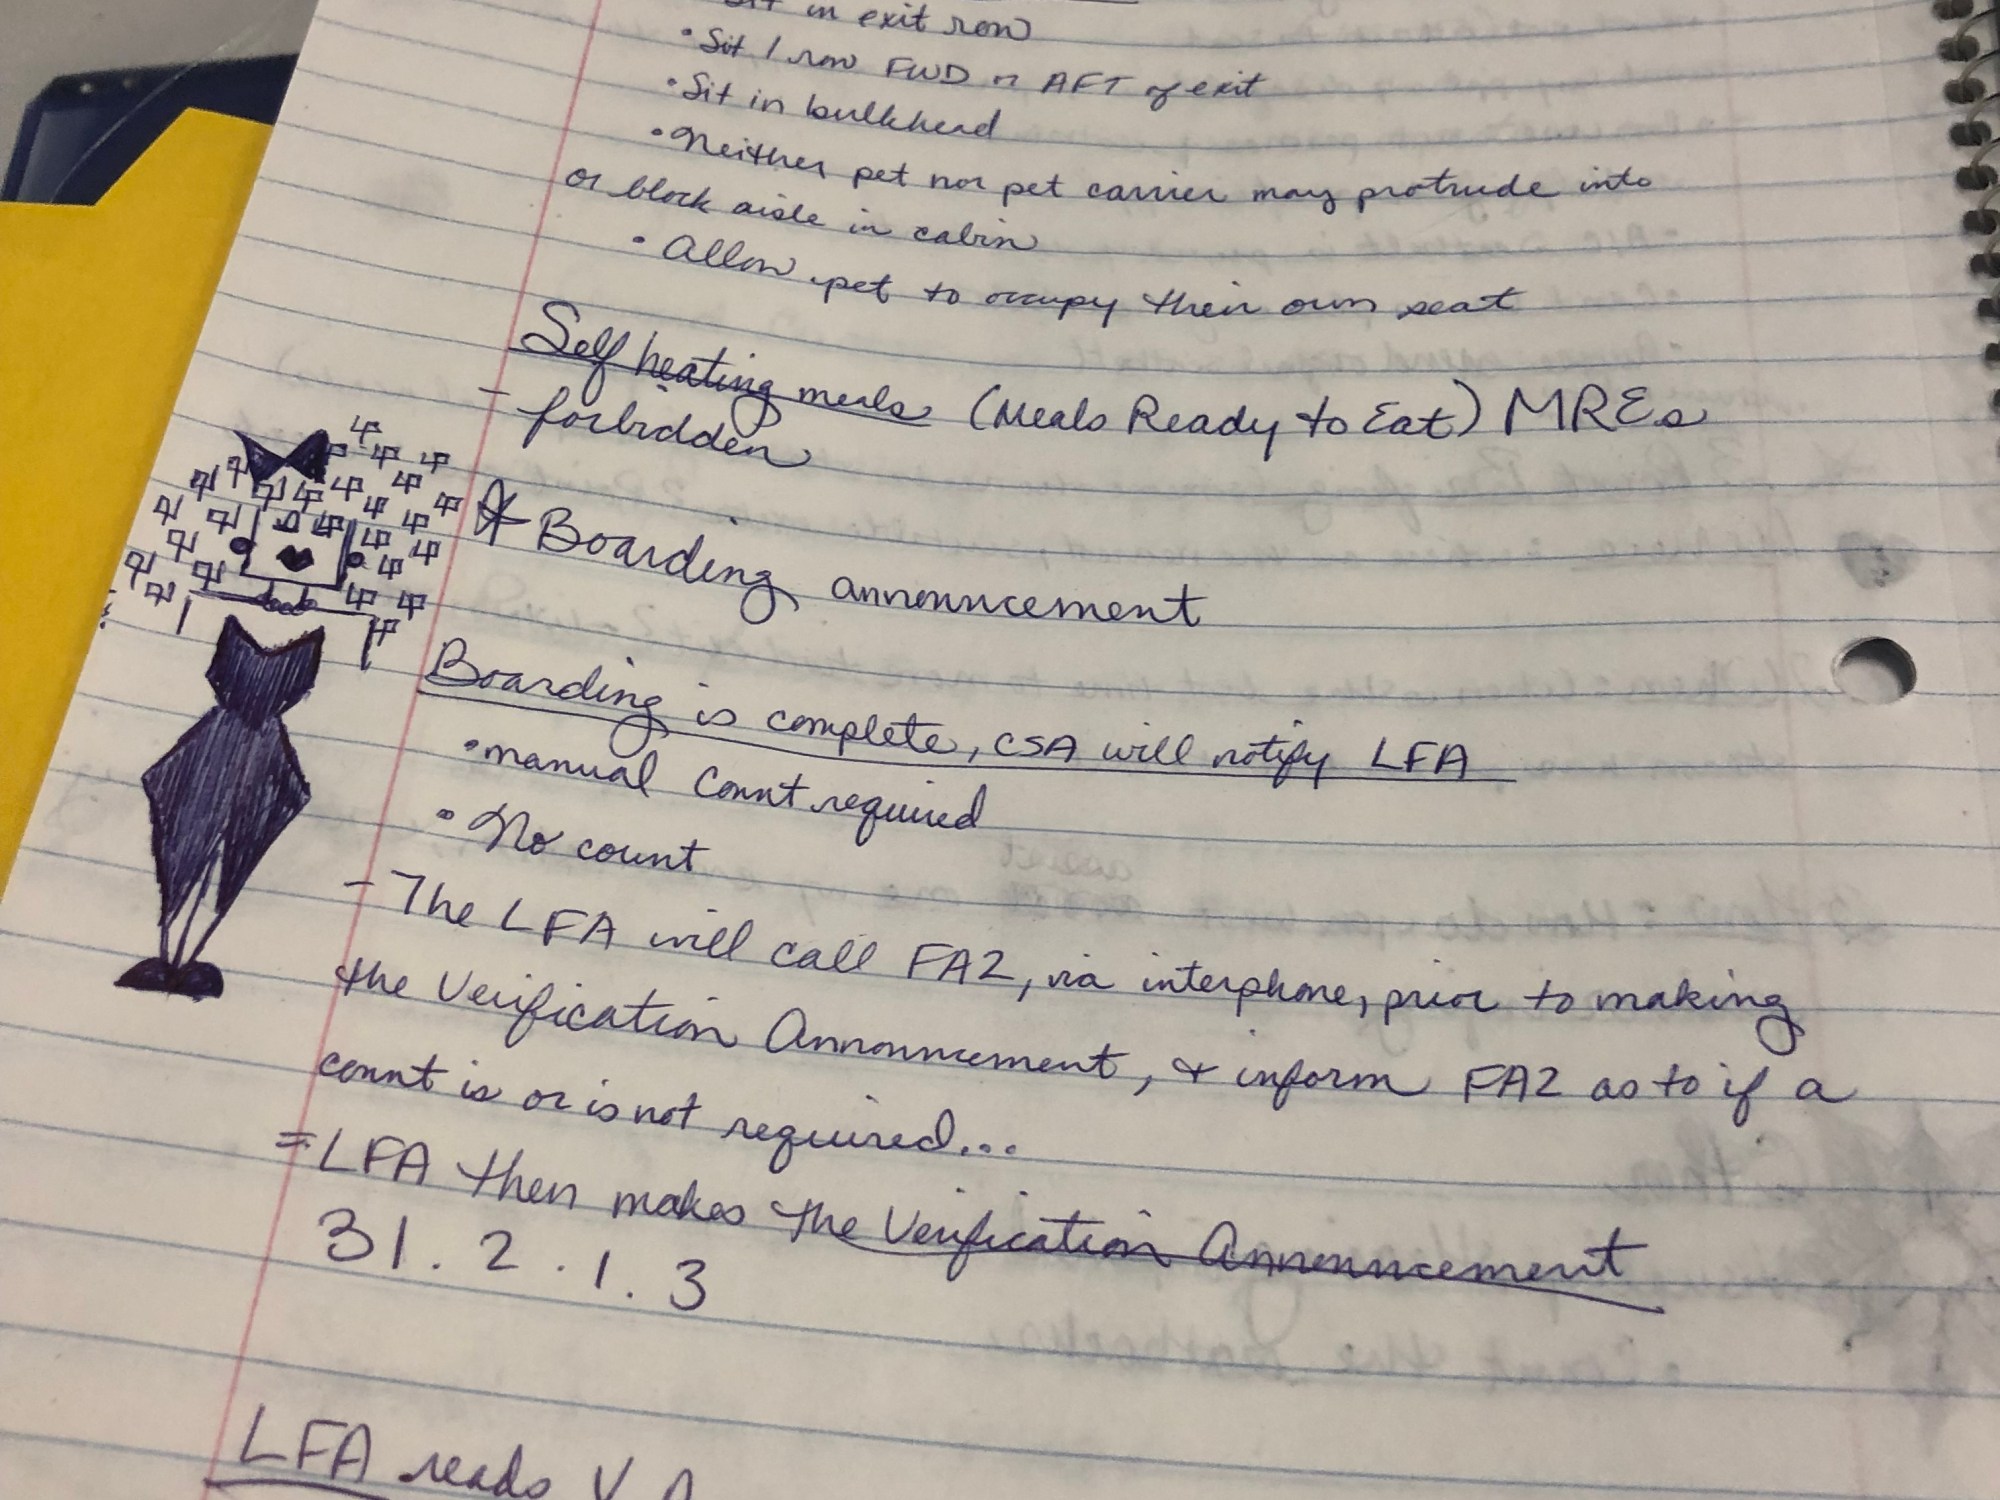 Sit in exit row
• Sit 1 row FWD or AFT of exit
• Sit in bulkhead
• Neither pet nor pet carrier may protrude into
or block aisle in cabin
• Allow pet to occupy their own seat
Self heating meals (Meals Ready to Eat) MREs
- forbidden
* Boarding announcement
Boarding is complete, CSA will notify LFA
• manual count required
• No count
- The LFA will call FA2, via interphone, prior to making
the Verification Announcement, & inform FA2 as to if a
count is or is not required...
= LFA then makes the Verification Announcement
31.2.1.3
LFA reads V A